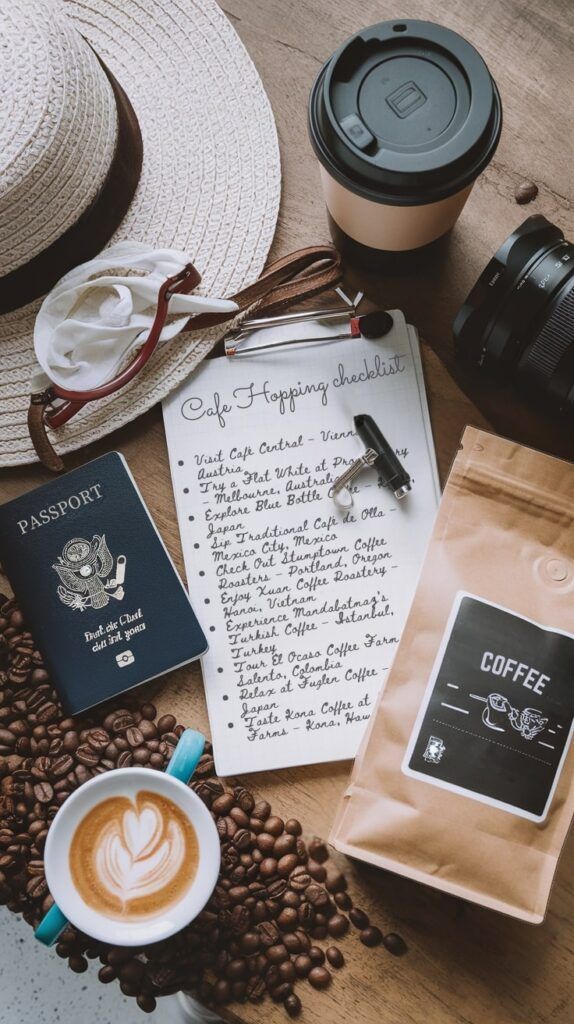 Cafe Hopping checklist
• Visit Cafe Central –
Austria
• Try a Flat White at
– Melbourne,
• Explore Blue Bottle
Japan
• Sip Traditional Cafe de Olla –
Mexico City, Mexico
• Check Out Stumptown Coffee
Roasters – Portland, Oregon
• Enjoy Xuan Coffee Roastery –
Hanoi, Vietnam
• Experience Mandabatmaz's
Turkish Coffee – Istanbul,
Turkey
• Tour El Ocaso Coffee Farm
Salento, Colombia
• Relax at Fuglen Coffee –
Japan
• Taste Kona Coffee at
Farms – Kona,
PASSPORT
COFFEE